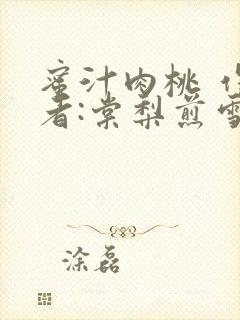 蜜汁肉桃
者:棠梨煎雪
涂磊